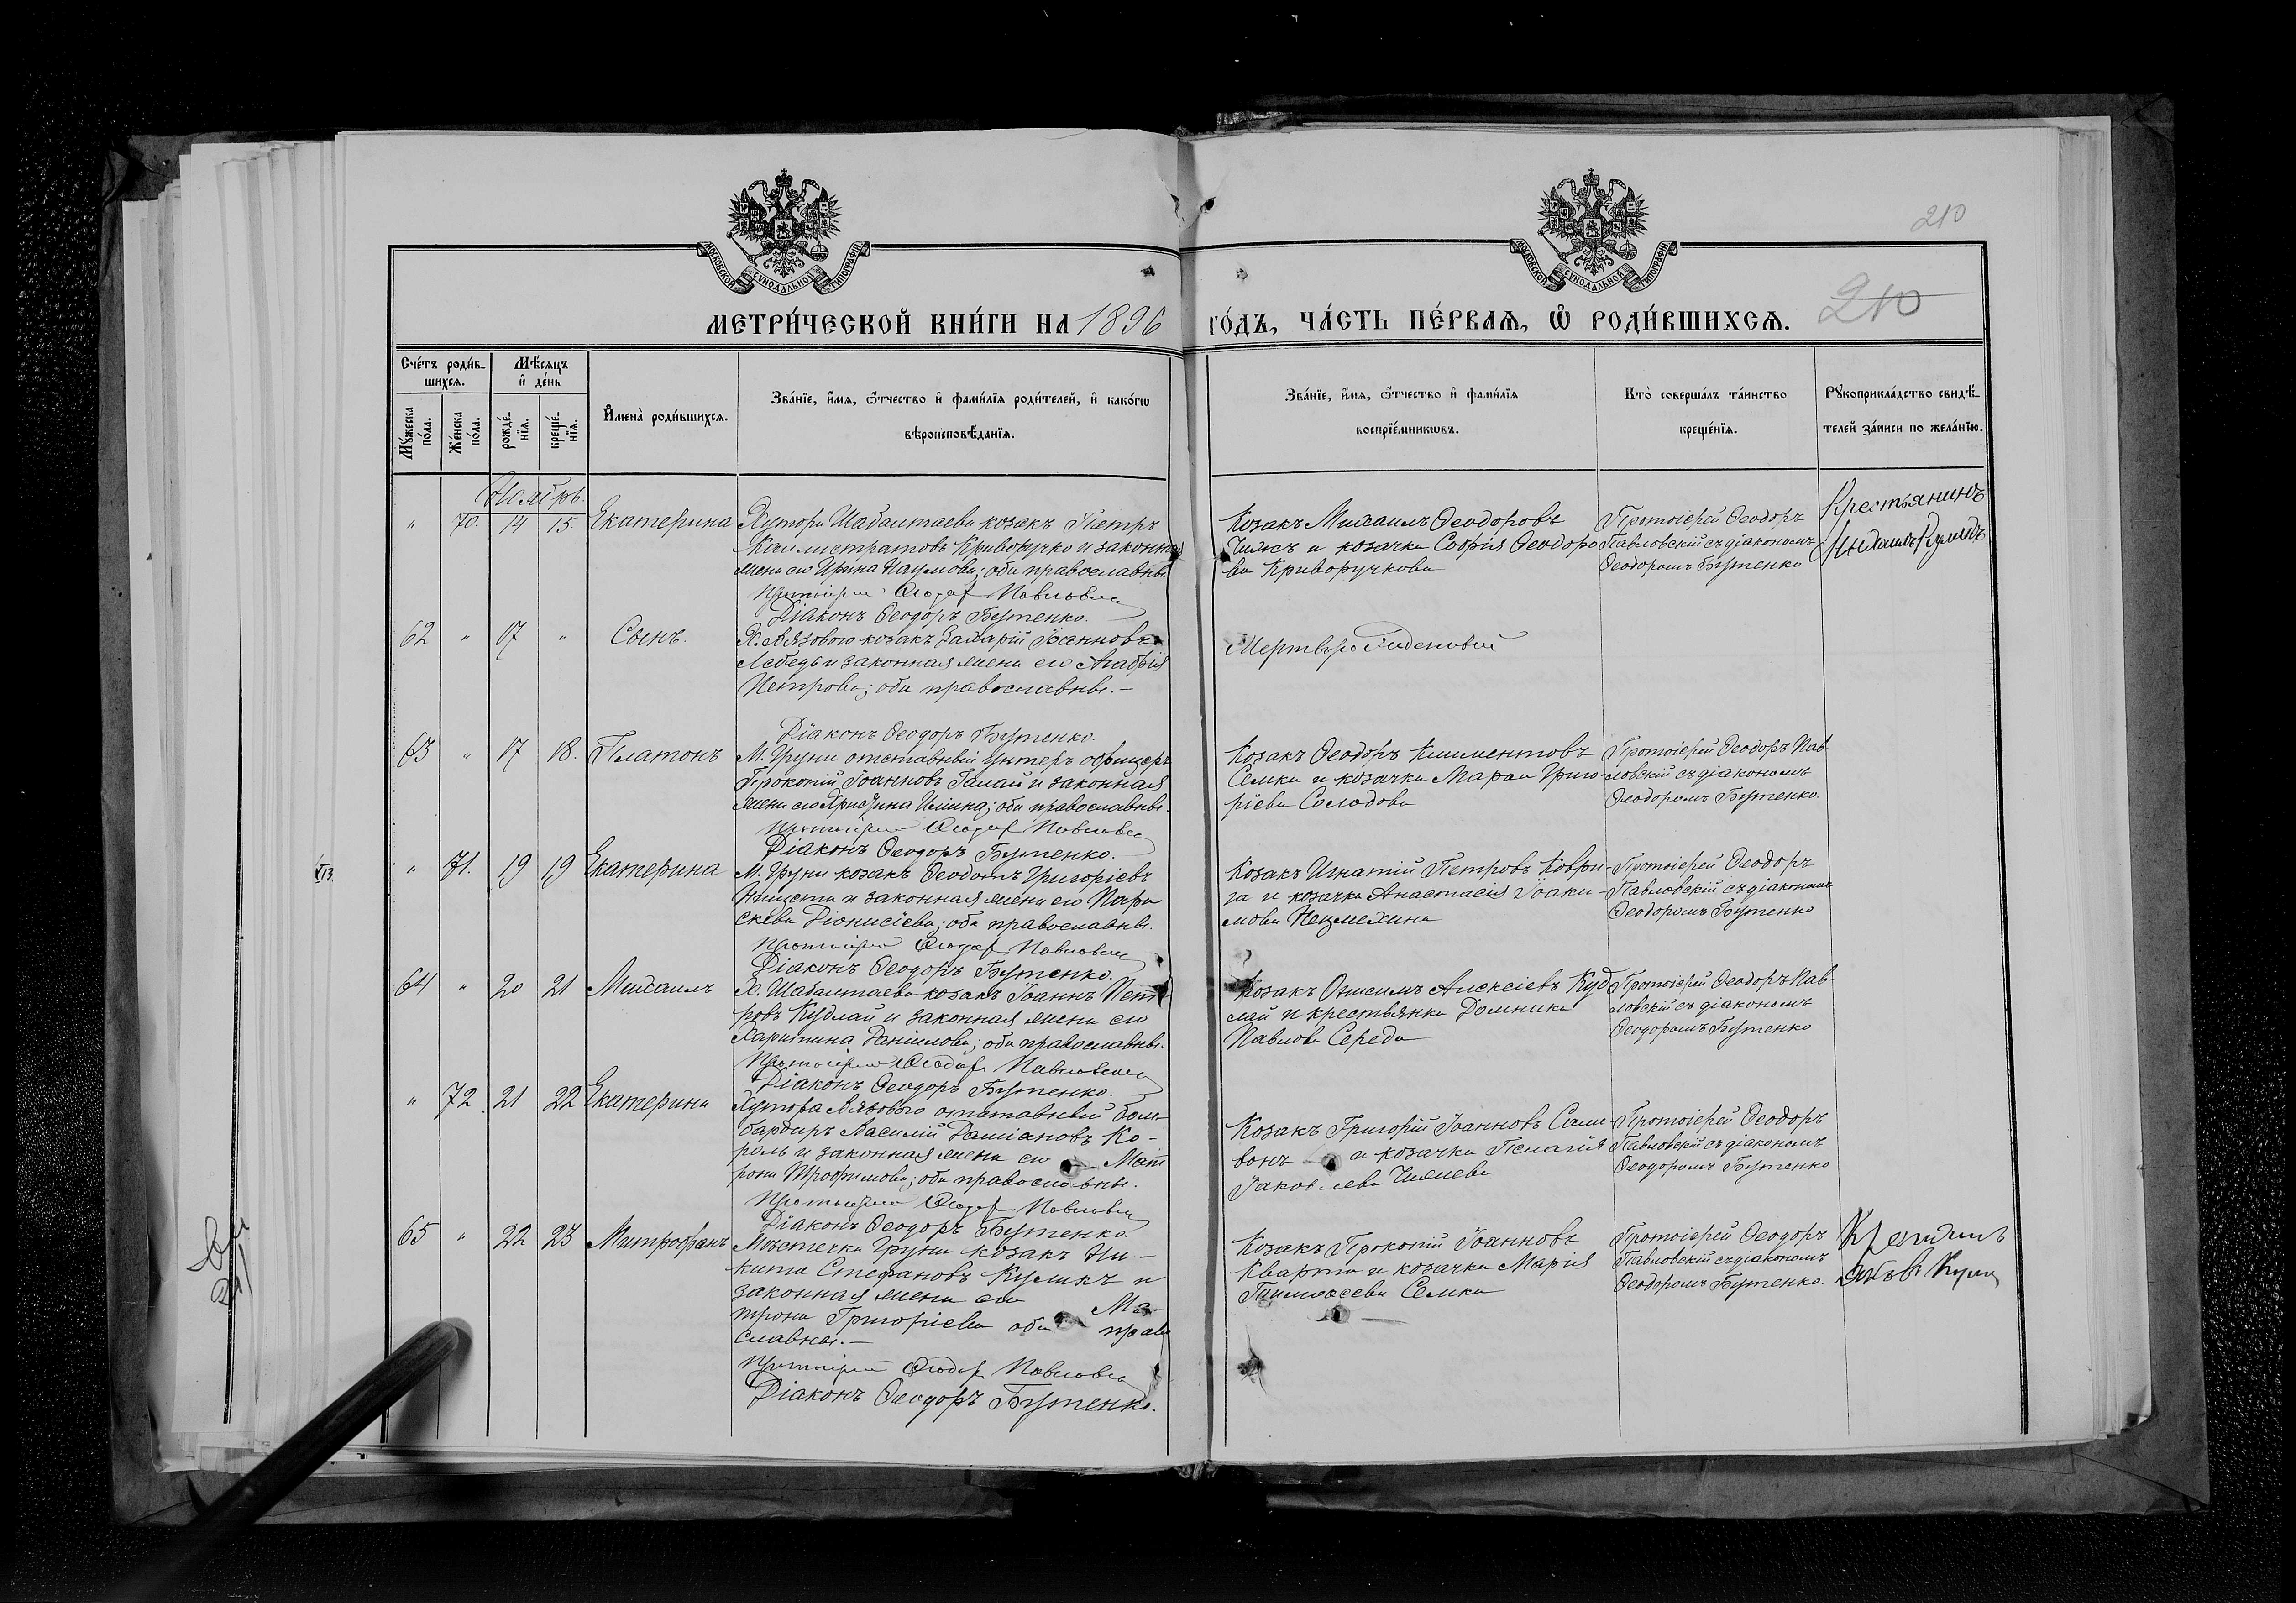 210
МОСКОВСКОЙ СУНОДАЛЬНОЙ ТИПОГРАФІИ
МОСКОВСКОЙ СУНОДАЛЬНОЙ ТИПОГРАФІИ
МЕТРИ́ЧЕСКОЙ КНИ́ГИ НА 1896 ГО́ДЪ, ЧА́СТЬ ПЕ́РВАЯ, Ѿ РОДИ́ВШИХСЯ.
210
Сче́тъ роди́в-
шихся.
Мѣ́сяцъ
и҆ де́нь
Му́жеска
по́ла.
Же́нска
по́ла.
рожде́-
нїя.
креще́-
нїя.
И҆мена̀ роди́вшихся.
Зва́нїе, и҆́мя, ѻ҆́тчество и҆ фами́лїя роди́телей, и҆ како́гѡ
вѣроисповѣ́данїя.
Зва́нїе, и҆́мя, ѻ҆́тчество и҆ фами́лїя
воспрїе́мникѡвъ.
Кто̀ соверша́лъ та́инство
креще́нїя.
Рꙋкоприкла́дство свидѣ́-
телей за́писи по жела́нїю.
Ноябрь.
" 70. 14 15. Екатерина
Хутора Шабалтаева козакъ Петръ
Каллистратовъ Криворучко и законная
жена его Ирина Наумова; оба православные
Діаконъ Ѳеодоръ Бутенко.
Козакъ Михаилъ Ѳеодоровъ
Чижъ и козачка Софія Ѳеодоро
ва Криворучкова
Протоіерей Ѳеодоръ
Павловскій съ діакономъ
Ѳеодоромъ Бутенко
Крестьянинъ
62 " 17 " Сынъ.
Х. Лязового козакъ Захарій Іоанновъ
Лебедь и законная жена его Агафія
Петрова; оба православные.—
Діаконъ Ѳеодоръ Бутенко.
Мертворожденный
63 " 17 18. Платонъ
М. Груни отставный унтеръ офицеръ
Прокопій Іоанновъ Галай и законная
жена его Христина Ильина; оба православные.
Діаконъ Ѳеодоръ Бутенко.
Козакъ Ѳеодоръ Климентовъ
Семка и козачка Марѳа Григо-
ріева Солодова
Протоіерей Ѳеодоръ Пав-
ловскій съ діакономъ
Ѳеодоромъ Бутенко.
" 71. 19 19 Екатерина
М. Груни козакъ Ѳеодотъ Григоріевъ
и законная жена его Пара
скева Діонисіева; оба православные.
Діаконъ Ѳеодоръ Бутенко.
Козакъ Игнатій Петровъ Коври-
га и козачка Анастасія Іоаки-
мова
Протоіерей Ѳеодоръ
Павловскій съ діакономъ
Ѳеодоромъ Бутенко
64 " 20 21 Михаилъ
Х. Шабалтаева козакъ Іоаннъ Пет-
ровъ Кудлай и законная жена его
Харитина Даніилова; оба православные.
Діаконъ Ѳеодоръ Бутенко.
Козакъ Онисимъ Алексіевъ Куд
лай и крестьянка Домника
Павлова Середа
Протоіерей Ѳеодоръ Пав-
ловскій съ діакономъ
Ѳеодоромъ Бутенко
" 72. 21 22 Екатерина
Хутора Лязового отставный бом-
бардиръ Василій Даміановъ Ко-
роль и законная жена его Мат
рона Трофимова; оба православные.
Діаконъ Ѳеодоръ Бутенко.
Козакъ Григорій Іоанновъ Сали
вонъ и козачка Пелагія
Іаковлева
Протоіерей Ѳеодоръ
Павловскій съ діакономъ
Ѳеодоромъ Бутенко
65 " 22 23 Митрофанъ
Мѣстечка Груни козакъ Ни-
кита Стефановъ Куликъ и
законная жена его Ма-
трона Григоріева оба право
славные.—
Діаконъ Ѳеодоръ Бутенко.
Козакъ Прокопій Іоанновъ
Кварта и козачка Марія
Тимоѳеева Семка
Протоіерей Ѳеодоръ
Павловскій съ діакономъ
Ѳеодоромъ Бутенко.